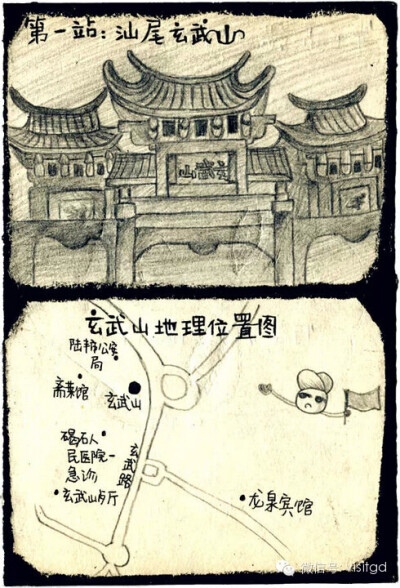 第一站：汕尾玄武山
山武玄
玄武山地理位置图
陆丰公安
局
斋菜馆
玄武山
碣石人
民医院-
急诊
玄武路
玄武山乌厅
龙泉宾馆
微信号: visitgd